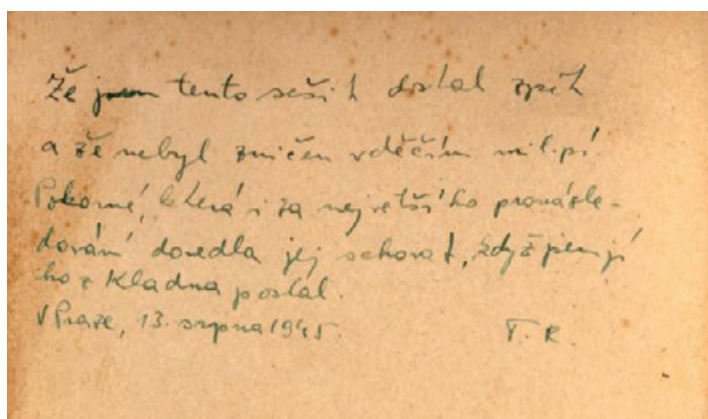 Že jsem tento sešit dostal zpět
a že nebyl zničen vděčím mil. pí
Pokorné, která i za největšího pronásle-
dování dovedla jej schovat, když jsem jí
ho z Kladna poslal.
V Praze, 13. srpna 1945. T. R.